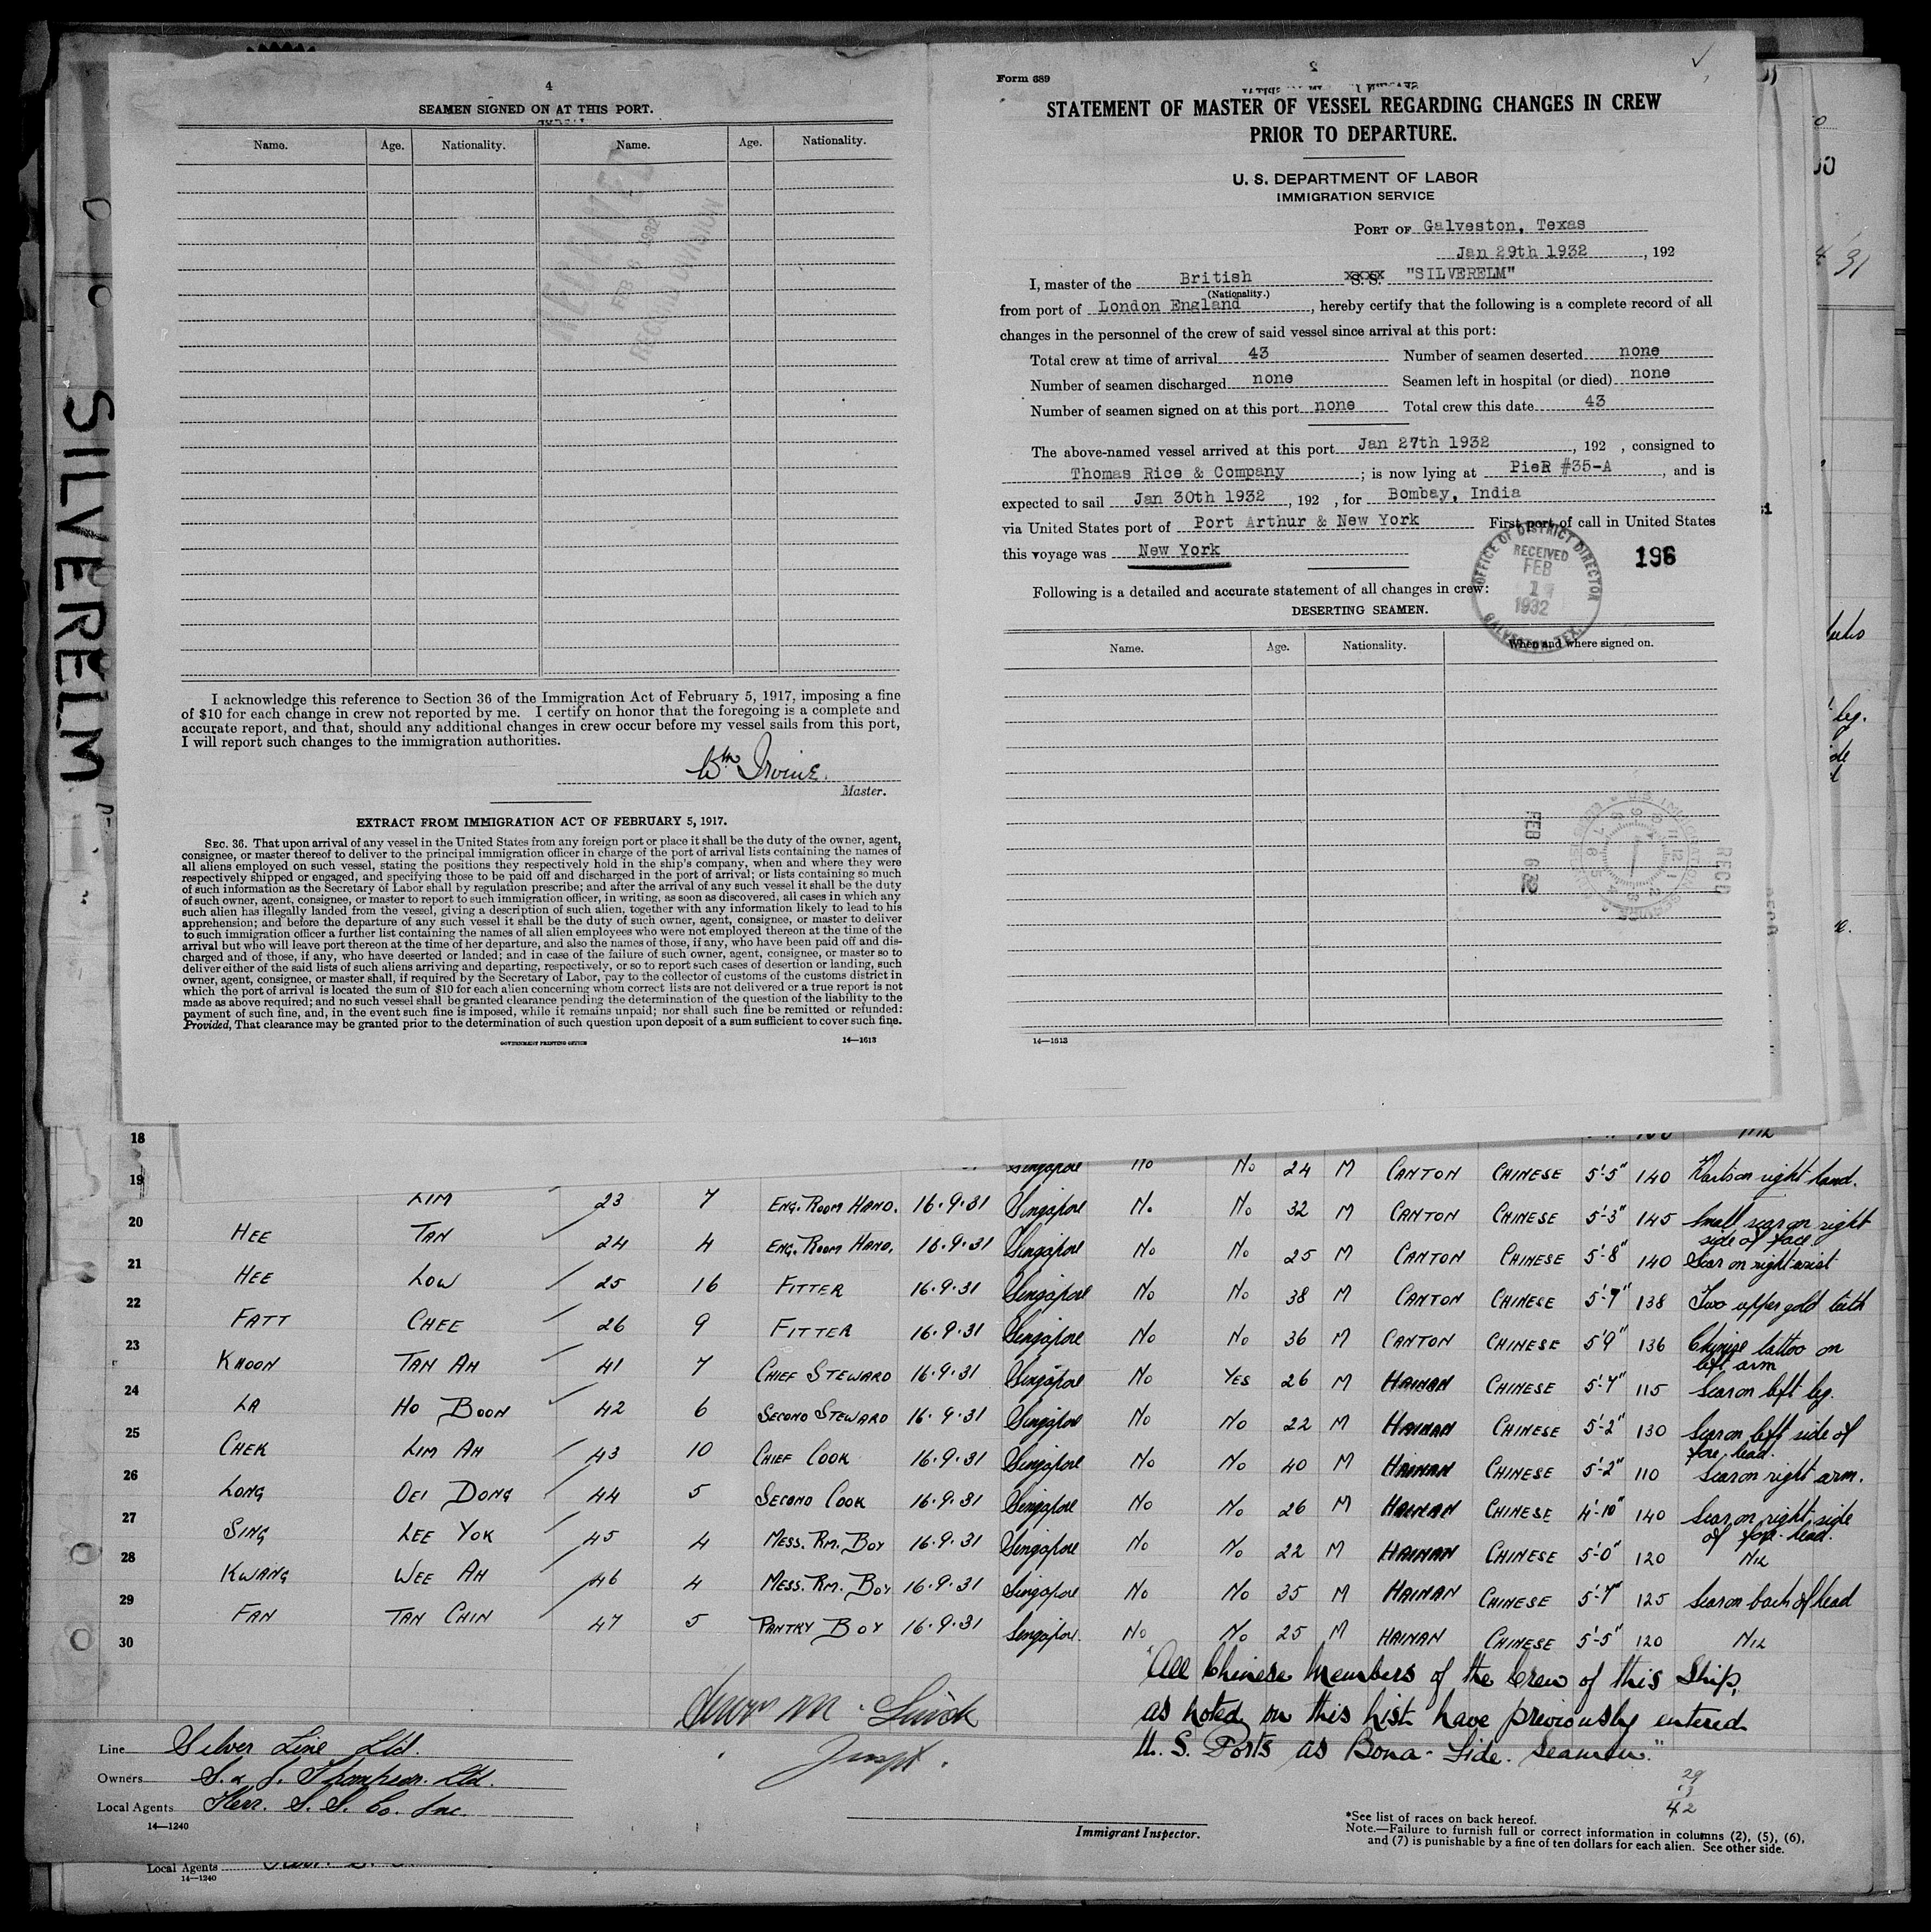 SILVERELM
4
SEAMEN SIGNED ON AT THIS PORT.
Name. Age. Nationality. Name. Age. Nationality.
FEB 6 1932
RECORD DIVISION
I acknowledge this reference to Section 36 of the Immigration Act of February 5, 1917, imposing a fine
of $10 for each change in crew not reported by me. I certify on honor that the foregoing is a complete and
accurate report, and that, should any additional changes in crew occur before my vessel sails from this port,
I will report such changes to the immigration authorities.
Wm Irvine.
Master.
EXTRACT FROM IMMIGRATION ACT OF FEBRUARY 5, 1917.
SEC. 36. That upon arrival of any vessel in the United States from any foreign port or place it shall be the duty of the owner, agent,
consignee, or master thereof to deliver to the principal immigration officer in charge of the port of arrival lists containing the names of
all aliens employed on such vessel, stating the positions they respectively hold in the ship's company, when and where they were
respectively shipped or engaged, and specifying those to be paid off and discharged in the port of arrival; or lists containing so much
of such information as the Secretary of Labor shall by regulation prescribe; and after the arrival of any such vessel it shall be the duty
of such owner, agent, consignee, or master to report to such immigration officer, in writing, as soon as discovered, all cases in which any
such alien has illegally landed from the vessel, giving a description of such alien, together with any information likely to lead to his
apprehension; and before the departure of any such vessel it shall be the duty of such owner, agent, consignee, or master to deliver
to such immigration officer a further list containing the names of all alien employees who were not employed thereon at the time of the
arrival but who will leave port thereon at the time of her departure, and also the names of those, if any, who have been paid off and dis-
charged and of those, if any, who have deserted or landed; and in case of the failure of such owner, agent, consignee, or master so to
deliver either of the said lists of such aliens arriving and departing, respectively, or so to report such cases of desertion or landing, such
owner, agent, consignee, or master shall, if required by the Secretary of Labor, pay to the collector of customs of the customs district in
which the port of arrival is located the sum of $10 for each alien concerning whom correct lists are not delivered or a true report is not
made as above required; and no such vessel shall be granted clearance pending the determination of the question of the liability to the
payment of such fine, and, in the event such fine is imposed, while it remains unpaid; nor shall such fine be remitted or refunded:
Provided, That clearance may be granted prior to the determination of such question upon deposit of a sum sufficient to cover such fine.
GOVERNMENT PRINTING OFFICE 14—1613
Form 689
STATEMENT OF MASTER OF VESSEL REGARDING CHANGES IN CREW
PRIOR TO DEPARTURE.
U. S. DEPARTMENT OF LABOR
IMMIGRATION SERVICE
PORT OF Galveston, Texas
Jan 29th 1932, 192
I, master of the British S. S. "SILVERELM"
(Nationality.)
from port of London England, hereby certify that the following is a complete record of all
changes in the personnel of the crew of said vessel since arrival at this port:
Total crew at time of arrival 43 Number of seamen deserted none
Number of seamen discharged none Seamen left in hospital (or died) none
Number of seamen signed on at this port none Total crew this date 43
The above-named vessel arrived at this port Jan 27th 1932, 192 , consigned to
Thomas Rice & Company; is now lying at PieR #35-A, and is
expected to sail Jan 30th 1932, 192 , for Bombay, India
via United States port of Port Arthur & New York First port of call in United States
this voyage was New York
196
OFFICE OF DISTRICT DIRECTOR
RECEIVED
FEB
1
1932
GALVESTON, TEX.
Following is a detailed and accurate statement of all changes in crew:
DESERTING SEAMEN.
Name. Age. Nationality. When and where signed on.
FEB 6 32
RECD
14—1613
18
19 Singapore No No 24 M CANTON CHINESE 5'-5" 140 Warts on right hand.
LIM 23 7 ENG. ROOM HAND. 16.9.31 Singapore No No 32 M CANTON CHINESE 5'-3" 145 Small scar on right side of face
20 HEE TAN 24 4 ENG. ROOM HAND. 16.9.31 Singapore No No 25 M CANTON CHINESE 5'-8" 140 Scar on right wrist
21 HEE LOW 25 16 FITTER 16.9.31 Singapore No No 38 M CANTON CHINESE 5'-7" 138 Two upper gold teeth
22 FATT CHEE 26 9 FITTER 16.9.31 Singapore No No 36 M CANTON CHINESE 5'9" 136 Chinese tattoo on left arm
23 KHOON TAN AH 41 7 CHIEF STEWARD 16.9.31 Singapore No YES 26 M HAINAN CHINESE 5'-7" 115 Scar on left leg.
24 LA HO BOON 42 6 SECOND STEWARD 16.9.31 Singapore No No 22 M HAINAN CHINESE 5'-2" 130 Scar on left side of fore head.
25 CHEK LIM AH 43 10 CHIEF COOK 16.9.31 Singapore No No 40 M HAINAN CHINESE 5'-2" 110 Scar on right arm.
26 LONG OEI DONG 44 5 SECOND COOK 16.9.31 Singapore No No 26 M HAINAN CHINESE 4'-10" 140 Scar on right side of fore-head.
27 SING LEE YOK 45 4 MESS. RM. BOY 16.9.31 Singapore No No 22 M HAINAN CHINESE 5'-0" 120 NIL
28 KWANG WEE AH 46 4 MESS. RM. BOY 16.9.31 Singapore No No 35 M HAINAN CHINESE 5'-7" 125 Scar on back of head
29 FAN TAN CHIN 47 5 PANTRY BOY 16.9.31 Singapore. No No 25 M HAINAN CHINESE 5'-5" 120 NIL
30
"All Chinese Members of the Crew of this Ship,
as noted on this list have previously entered
U. S. Ports as Bona-Fide. Seamen."
29
13
42
Line Silver Line Ltd.
Owners S. & J. Thompson. Ltd.
Local Agents Kerr. S. S. Co. Inc.
14—1240
Immigrant Inspector.
*See list of races on back hereof.
Note.—Failure to furnish full or correct information in columns (2), (5), (6),
and (7) is punishable by a fine of ten dollars for each alien. See other side.
Local Agents
14—1240